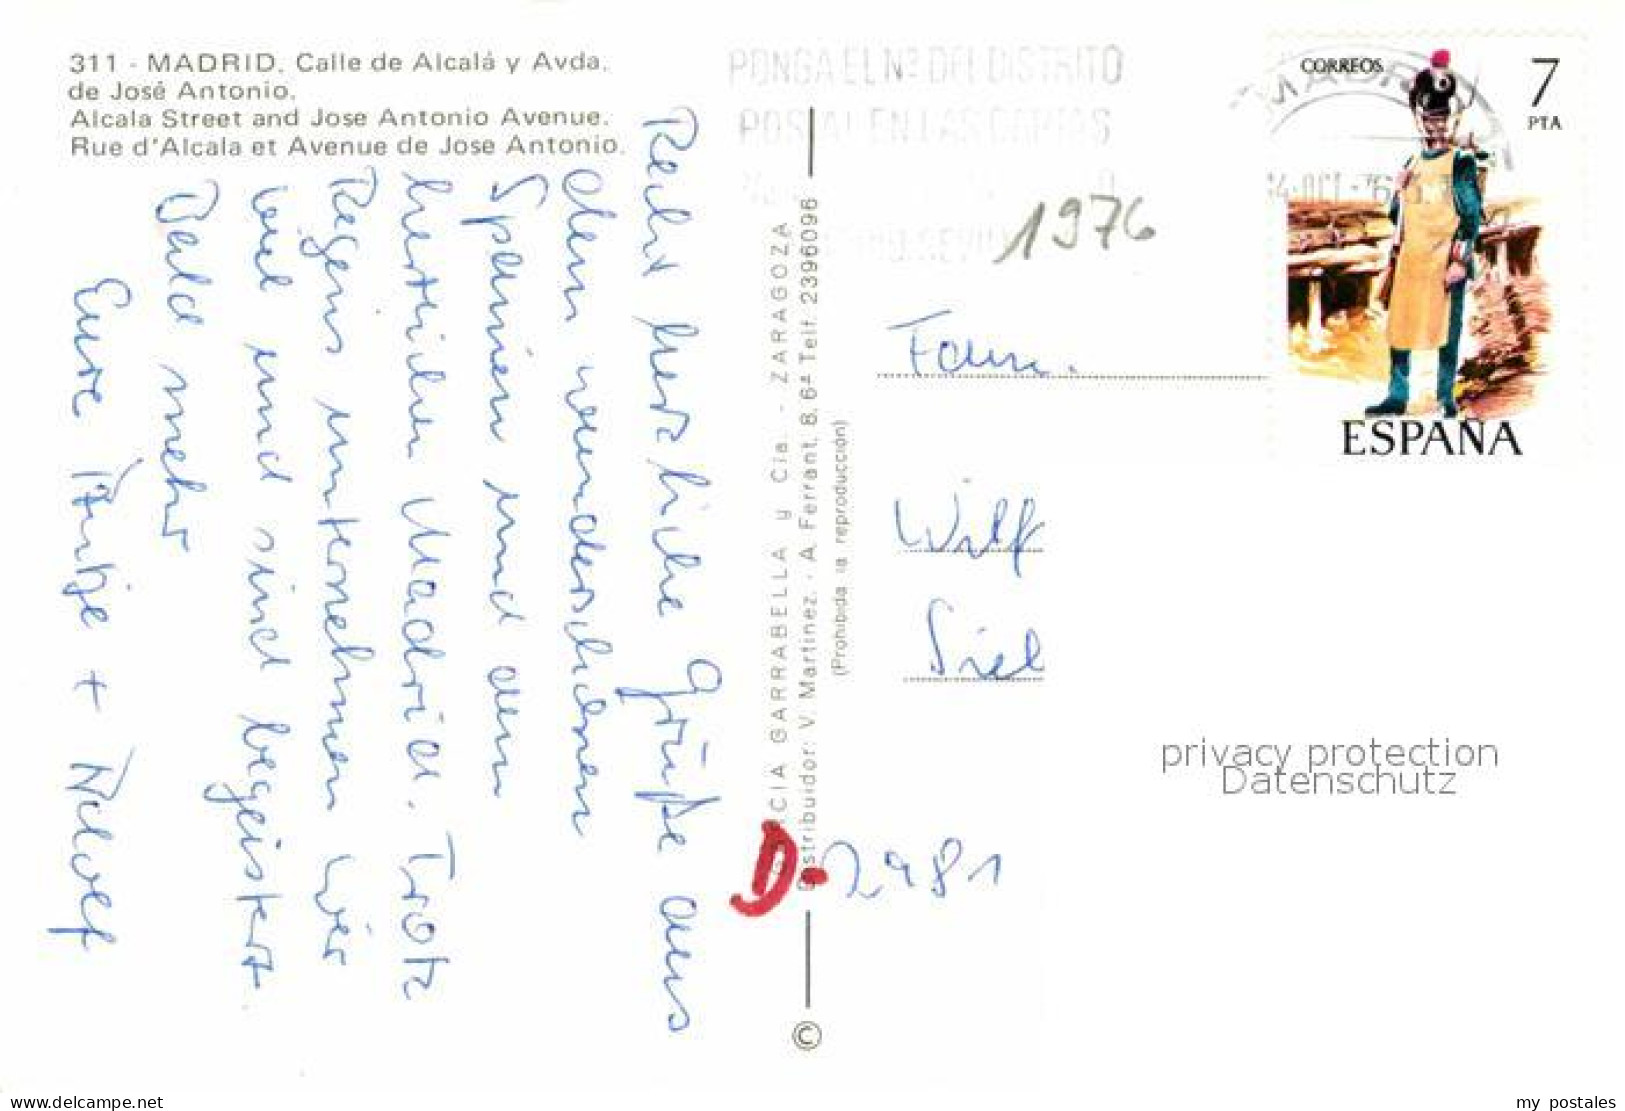 311 - MADRID. Calle de Alcalá y Avda.
de José Antonio.
Alcala Street and Jose Antonio Avenue.
Rue d'Alcala et Avenue de Jose Antonio.
Recht herzliche Grüße aus
dem wunderschönen
Spanien und dem
herrlichen Madrid. Trotz
Regens unternehmen wir
viel und sind begeistert.
Bald mehr
Eure Antje + Rolf
GARCIA GARRABELLA y Cía. - ZARAGOZA
Distribuidor: V. Martinez - A. Ferrant, 8, 6ª Telf. 2396096
(Prohibida la reproducción)
©
PONGA EL Nº DEL DISTRITO
POSTAL EN LAS CARTAS
MADRID
1976
CORREOS
7
PTA
ESPAÑA
Fam.
Wilf
Siel
D-2981
privacy protection
Datenschutz
www.delcampe.net
my_postales